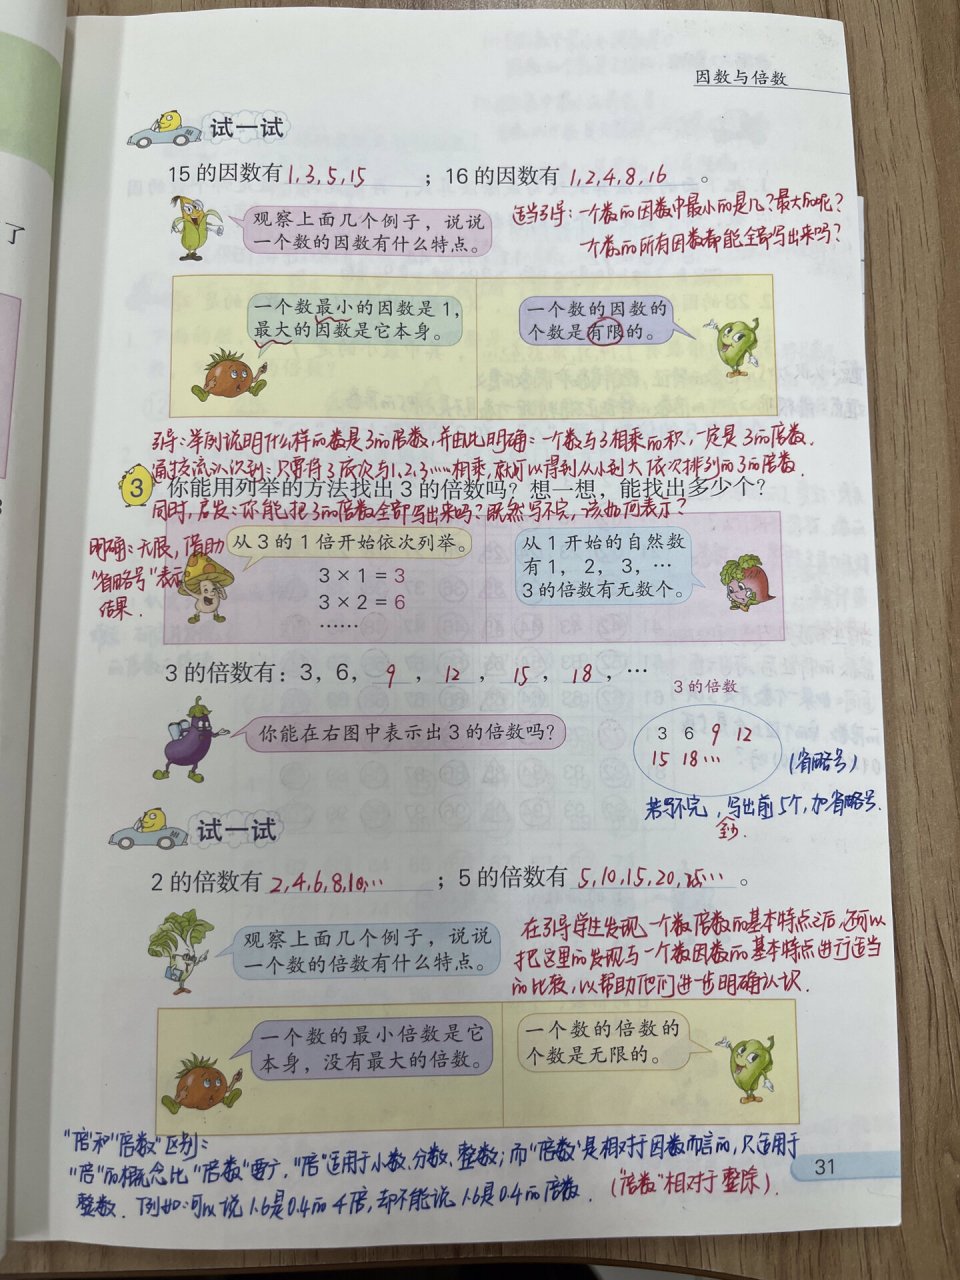 因数与倍数
了
试一试
15 的因数有 1,3,5,15 ；16 的因数有 1,2,4,8,16 。
适当引导：一个数的因数中最小的是几？最大的呢？
一个数的所有因数都能全部写出来吗？
观察上面几个例子，说说
一个数的因数有什么特点。
一个数最小的因数是 1，
最大的因数是它本身。
一个数的因数的
个数是有限的。
引导：举例说明什么样的数是3的倍数，并由此明确：一个数与3相乘的积，一定是3的倍数.
通过交流认识到：只要将3依次与1,2,3……相乘，就可以得到从小到大依次排列的3的倍数.
3 你能用列举的方法找出 3 的倍数吗？想一想，能找出多少个？
同时，启发：你能把3的倍数全部写出来吗？既然写不完，该如何表示？
明确：无限，借助
"省略号"表示
结果.
从 3 的 1 倍开始依次列举。
3 × 1 = 3
3 × 2 = 6
……
从 1 开始的自然数
有 1， 2， 3， …
3 的倍数有无数个。
3 的倍数有：3，6， 9 ， 12 ， 15 ， 18 ，…
3 的倍数
你能在右图中表示出 3 的倍数吗？
3 6 9 12
15 18…
(省略号)
若写不完，写出前5个，加省略号.
至少.
试一试
2 的倍数有 2,4,6,8,10,… ；5 的倍数有 5,10,15,20,25,… 。
观察上面几个例子，说说
一个数的倍数有什么特点。
在引导学生发现一个数倍数的基本特点之后，还可以
把这里的发现与一个数因数的基本特点进行适当
的比较，以帮助他们进一步明确认识.
一个数的最小倍数是它
本身，没有最大的倍数。
一个数的倍数的
个数是无限的。
"倍"和"倍数"区别：
"倍"的概念比"倍数"要广，"倍"适用于小数、分数、整数；而"倍数"是相对于因数而言的，只适用于
整数. 例如：可以说1.6是0.4的4倍，却不能说1.6是0.4的倍数. ("倍数"相对于整除).
31